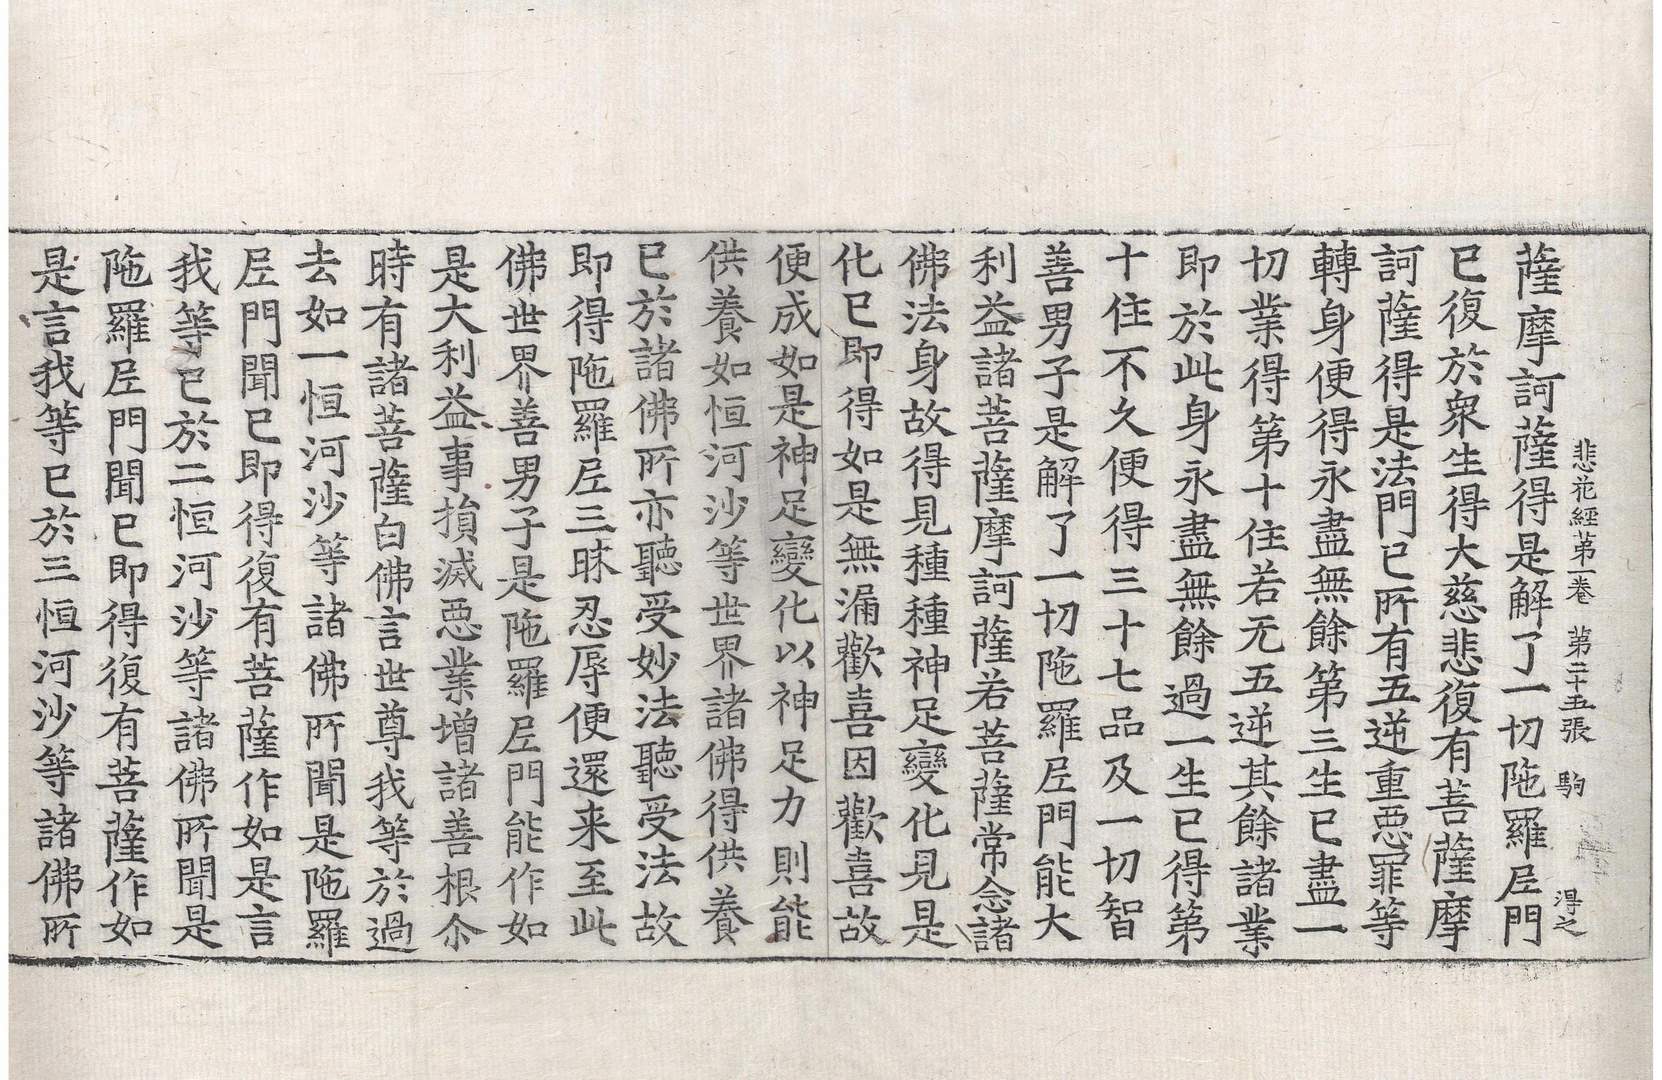 悲花經第一卷　第二十五張　駒　得之
薩摩訶薩得是解了一切陁羅𡰱門
已復於衆生得大慈悲復有菩薩摩
訶薩得是法門已所有五逆重惡罪等
轉身便得永盡無餘第三生已盡一
切業得第十住若无五逆其餘諸業
即於此身永盡無餘過一生已得第
十住不久便得三十七品及一切智
善男子是解了一切陁羅𡰱門能大
利益諸菩薩摩訶薩若菩薩常念諸
佛法身故得見種種神足變化見是
化已即得如是無漏歡喜因歡喜故
便成如是神足變化以神足力則能
供養如恒河沙等世界諸佛得供養
已於諸佛所亦聽受妙法聽受法故
即得陁羅𡰱三昧忍辱便還来至此
佛世界善男子是陁羅𡰱門能作如
是大利益事損滅惡業增諸善根尒
時有諸菩薩白佛言世尊我等於過
去如一恒河沙等諸佛所聞是陁羅
𡰱門聞已即得復有菩薩作如是言
我等已於二恒河沙等諸佛所聞是
陁羅𡰱門聞已即得復有菩薩作如
是言我等已於三恒河沙等諸佛所